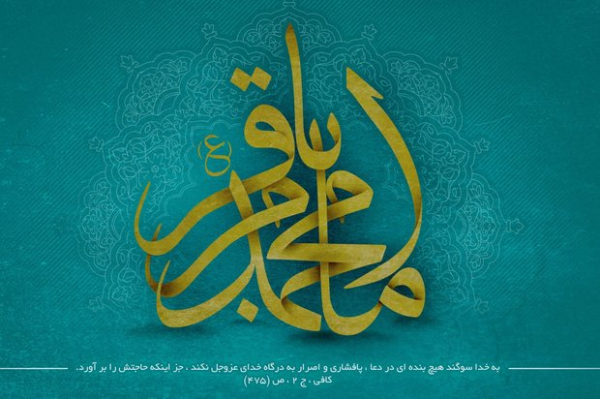 امام محمد باقر (ع)
به خدا سوگند هیچ بنده ای در دعا ، پافشاری و اصرار به درگاه خدای عزوجل نکند ، جز اینکه حاجتش را بر آورد.
کافی ، ج ۲ ، ص (۴۷۵)